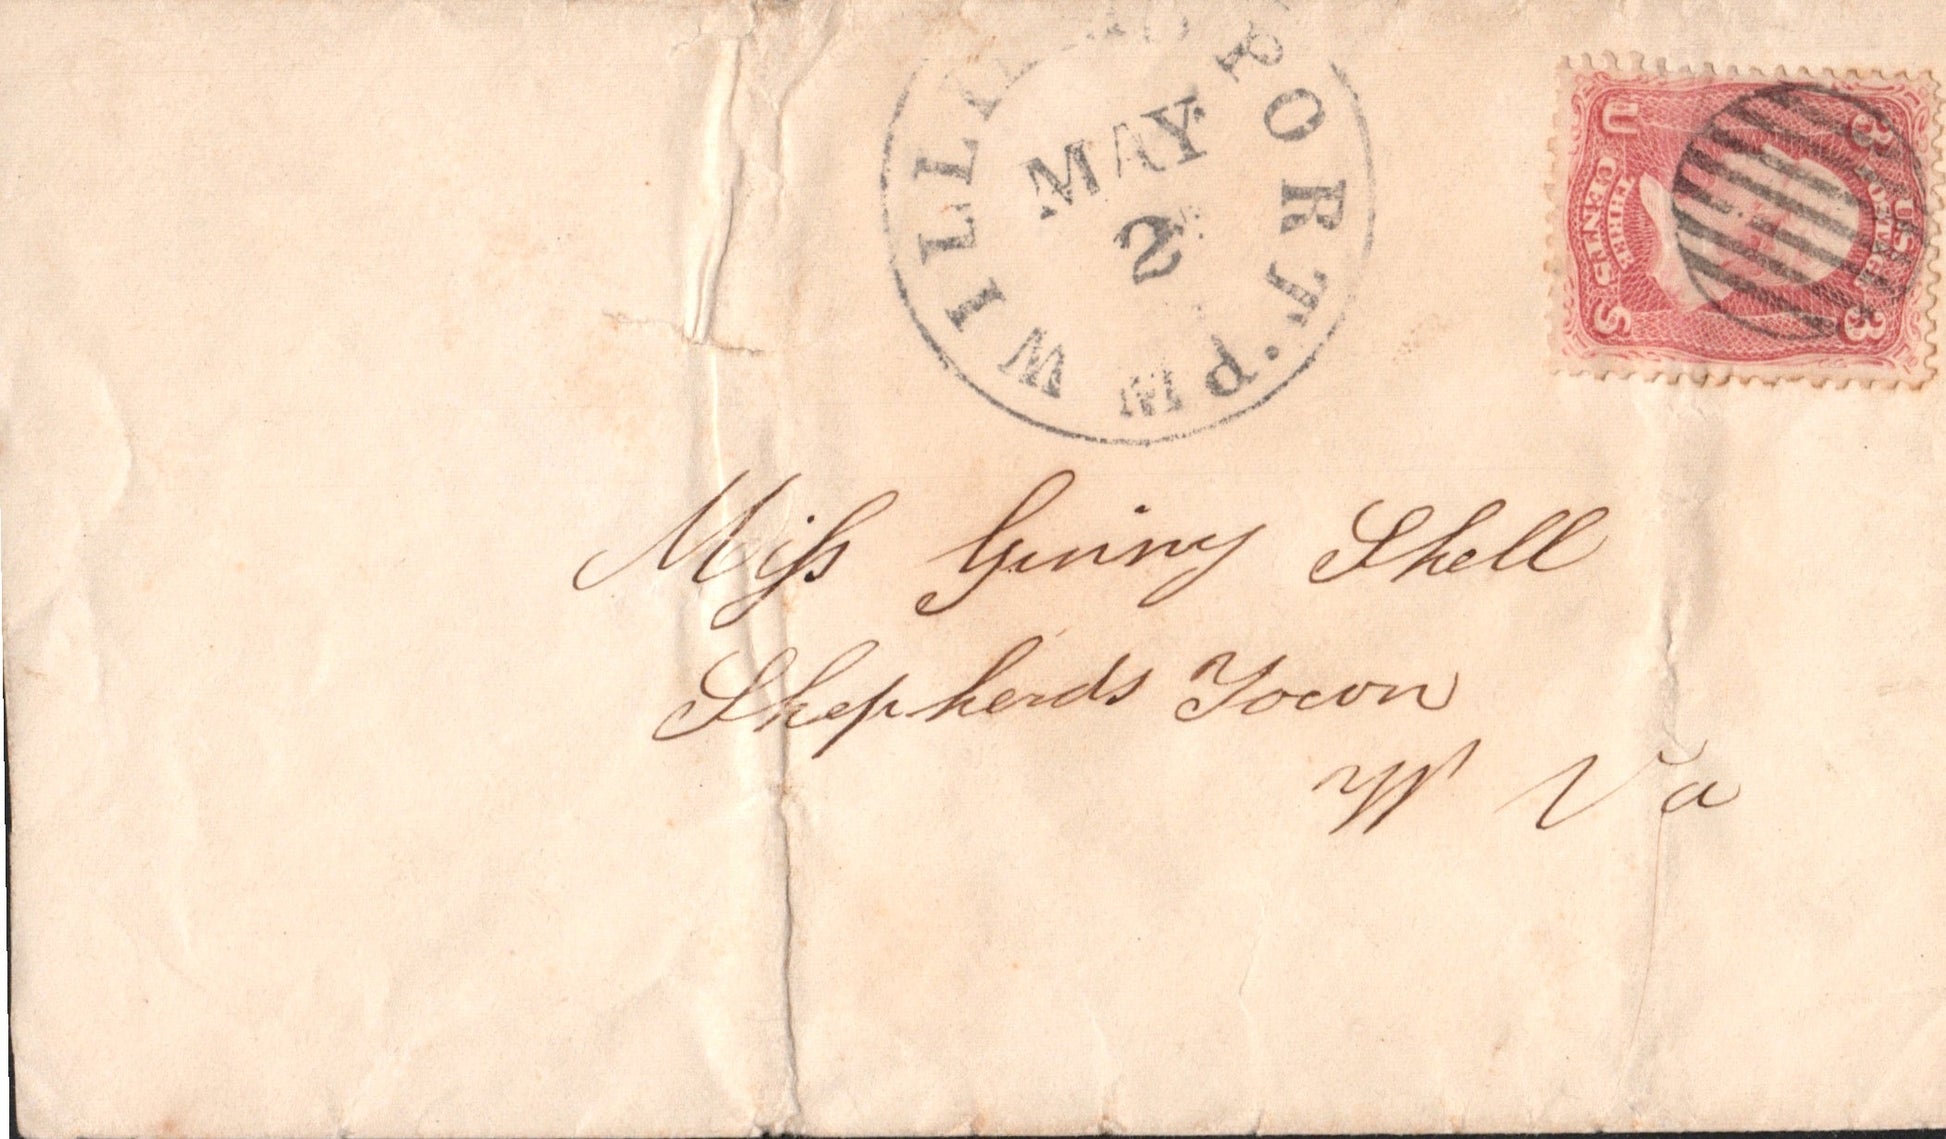 WILLI SPORT
MAY
2
U 3
U.S. POSTAGE
THREE
CENTS
S 3
Miss Ginny Shell
Shepherds Town
W Va